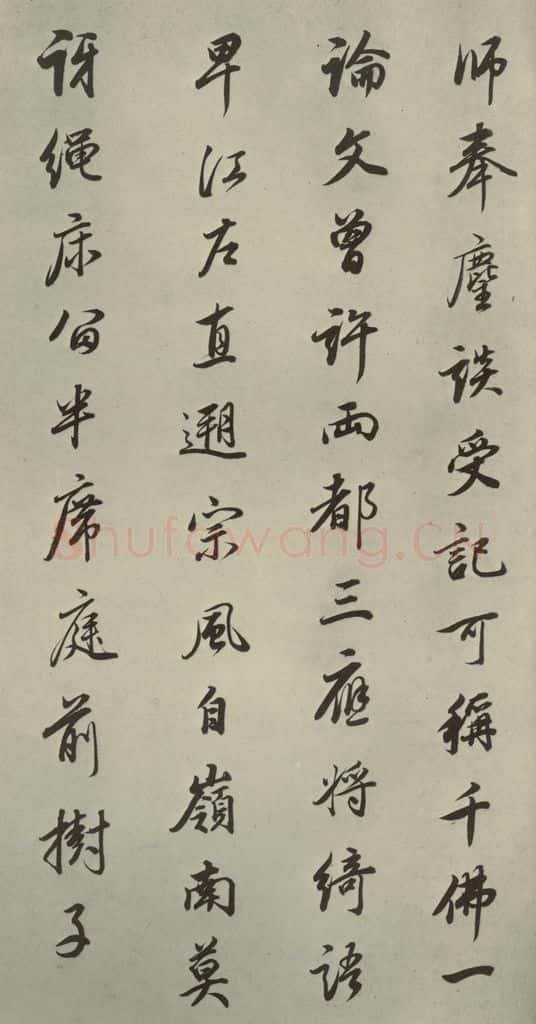 師奉麈談受記可稱千佛一
論文曾許兩都三應將綺語
卑江左直遡宗風自嶺南莫
訝繩床留半席庭前樹子
shufawang.cn